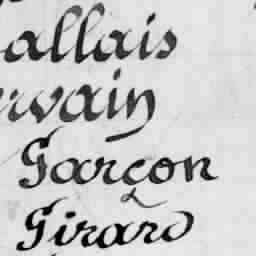 allais
rvain
Garçon
Girard